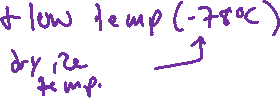 + low temp (-78°C)
dry ice
temp.